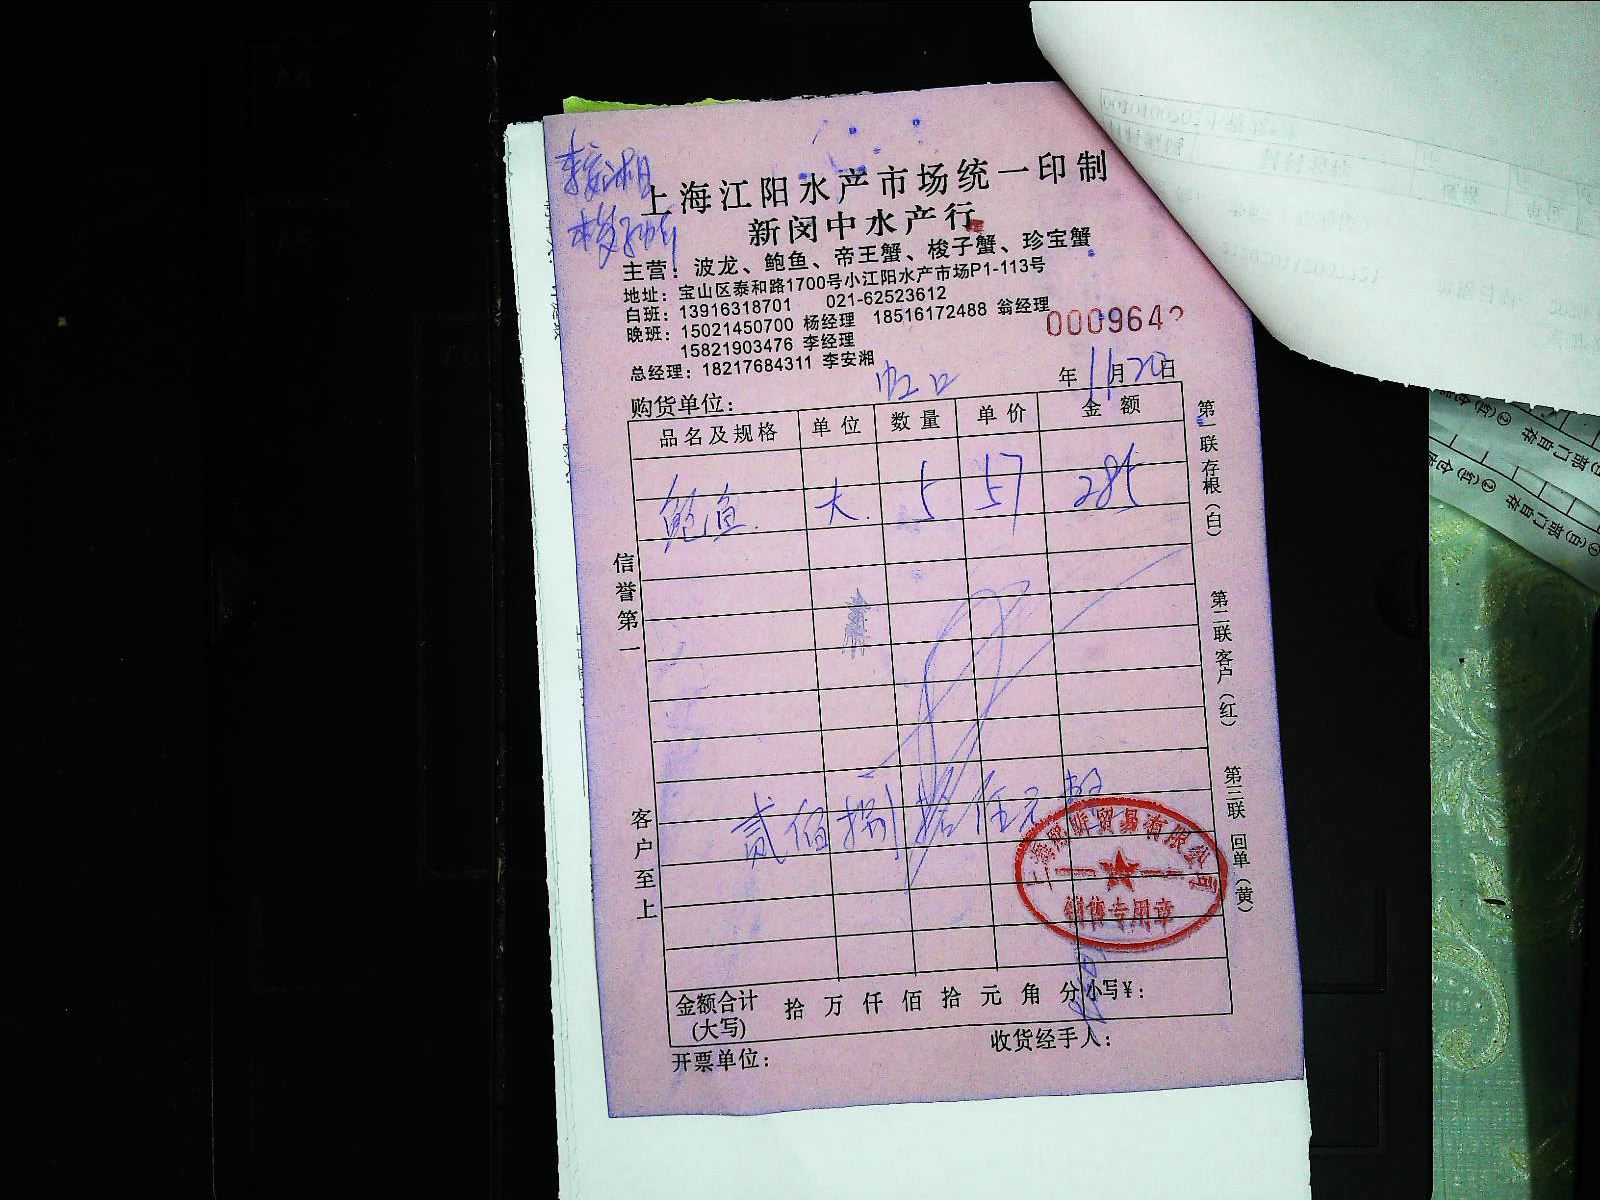 李安湘
梭子蟹
上海江阳水产市场统一印制
新闵中水产行
主营：波龙、鲍鱼、帝王蟹、梭子蟹、珍宝蟹
地址：宝山区泰和路1700号小江阳水产市场P1-113号
白班：13916318701 021-62523612
晚班：15021450700 杨经理 18516172488 翁经理
15821903476 李经理
总经理：18217684311 李安湘
0009642
购货单位： 虹口 年 11月20日
品名及规格 单位 数量 单价 金额
鲍鱼 大 5 57 285
贰佰捌拾伍元整
贸易有限公司
销售专用章
金额合计(大写) 拾 万 仟 佰 拾 元 角 分 小写¥：
开票单位： 收货经手人：
信誉第一
客户至上
第一联 存根（白）
第二联 客户（红）
第三联 回单（黄）